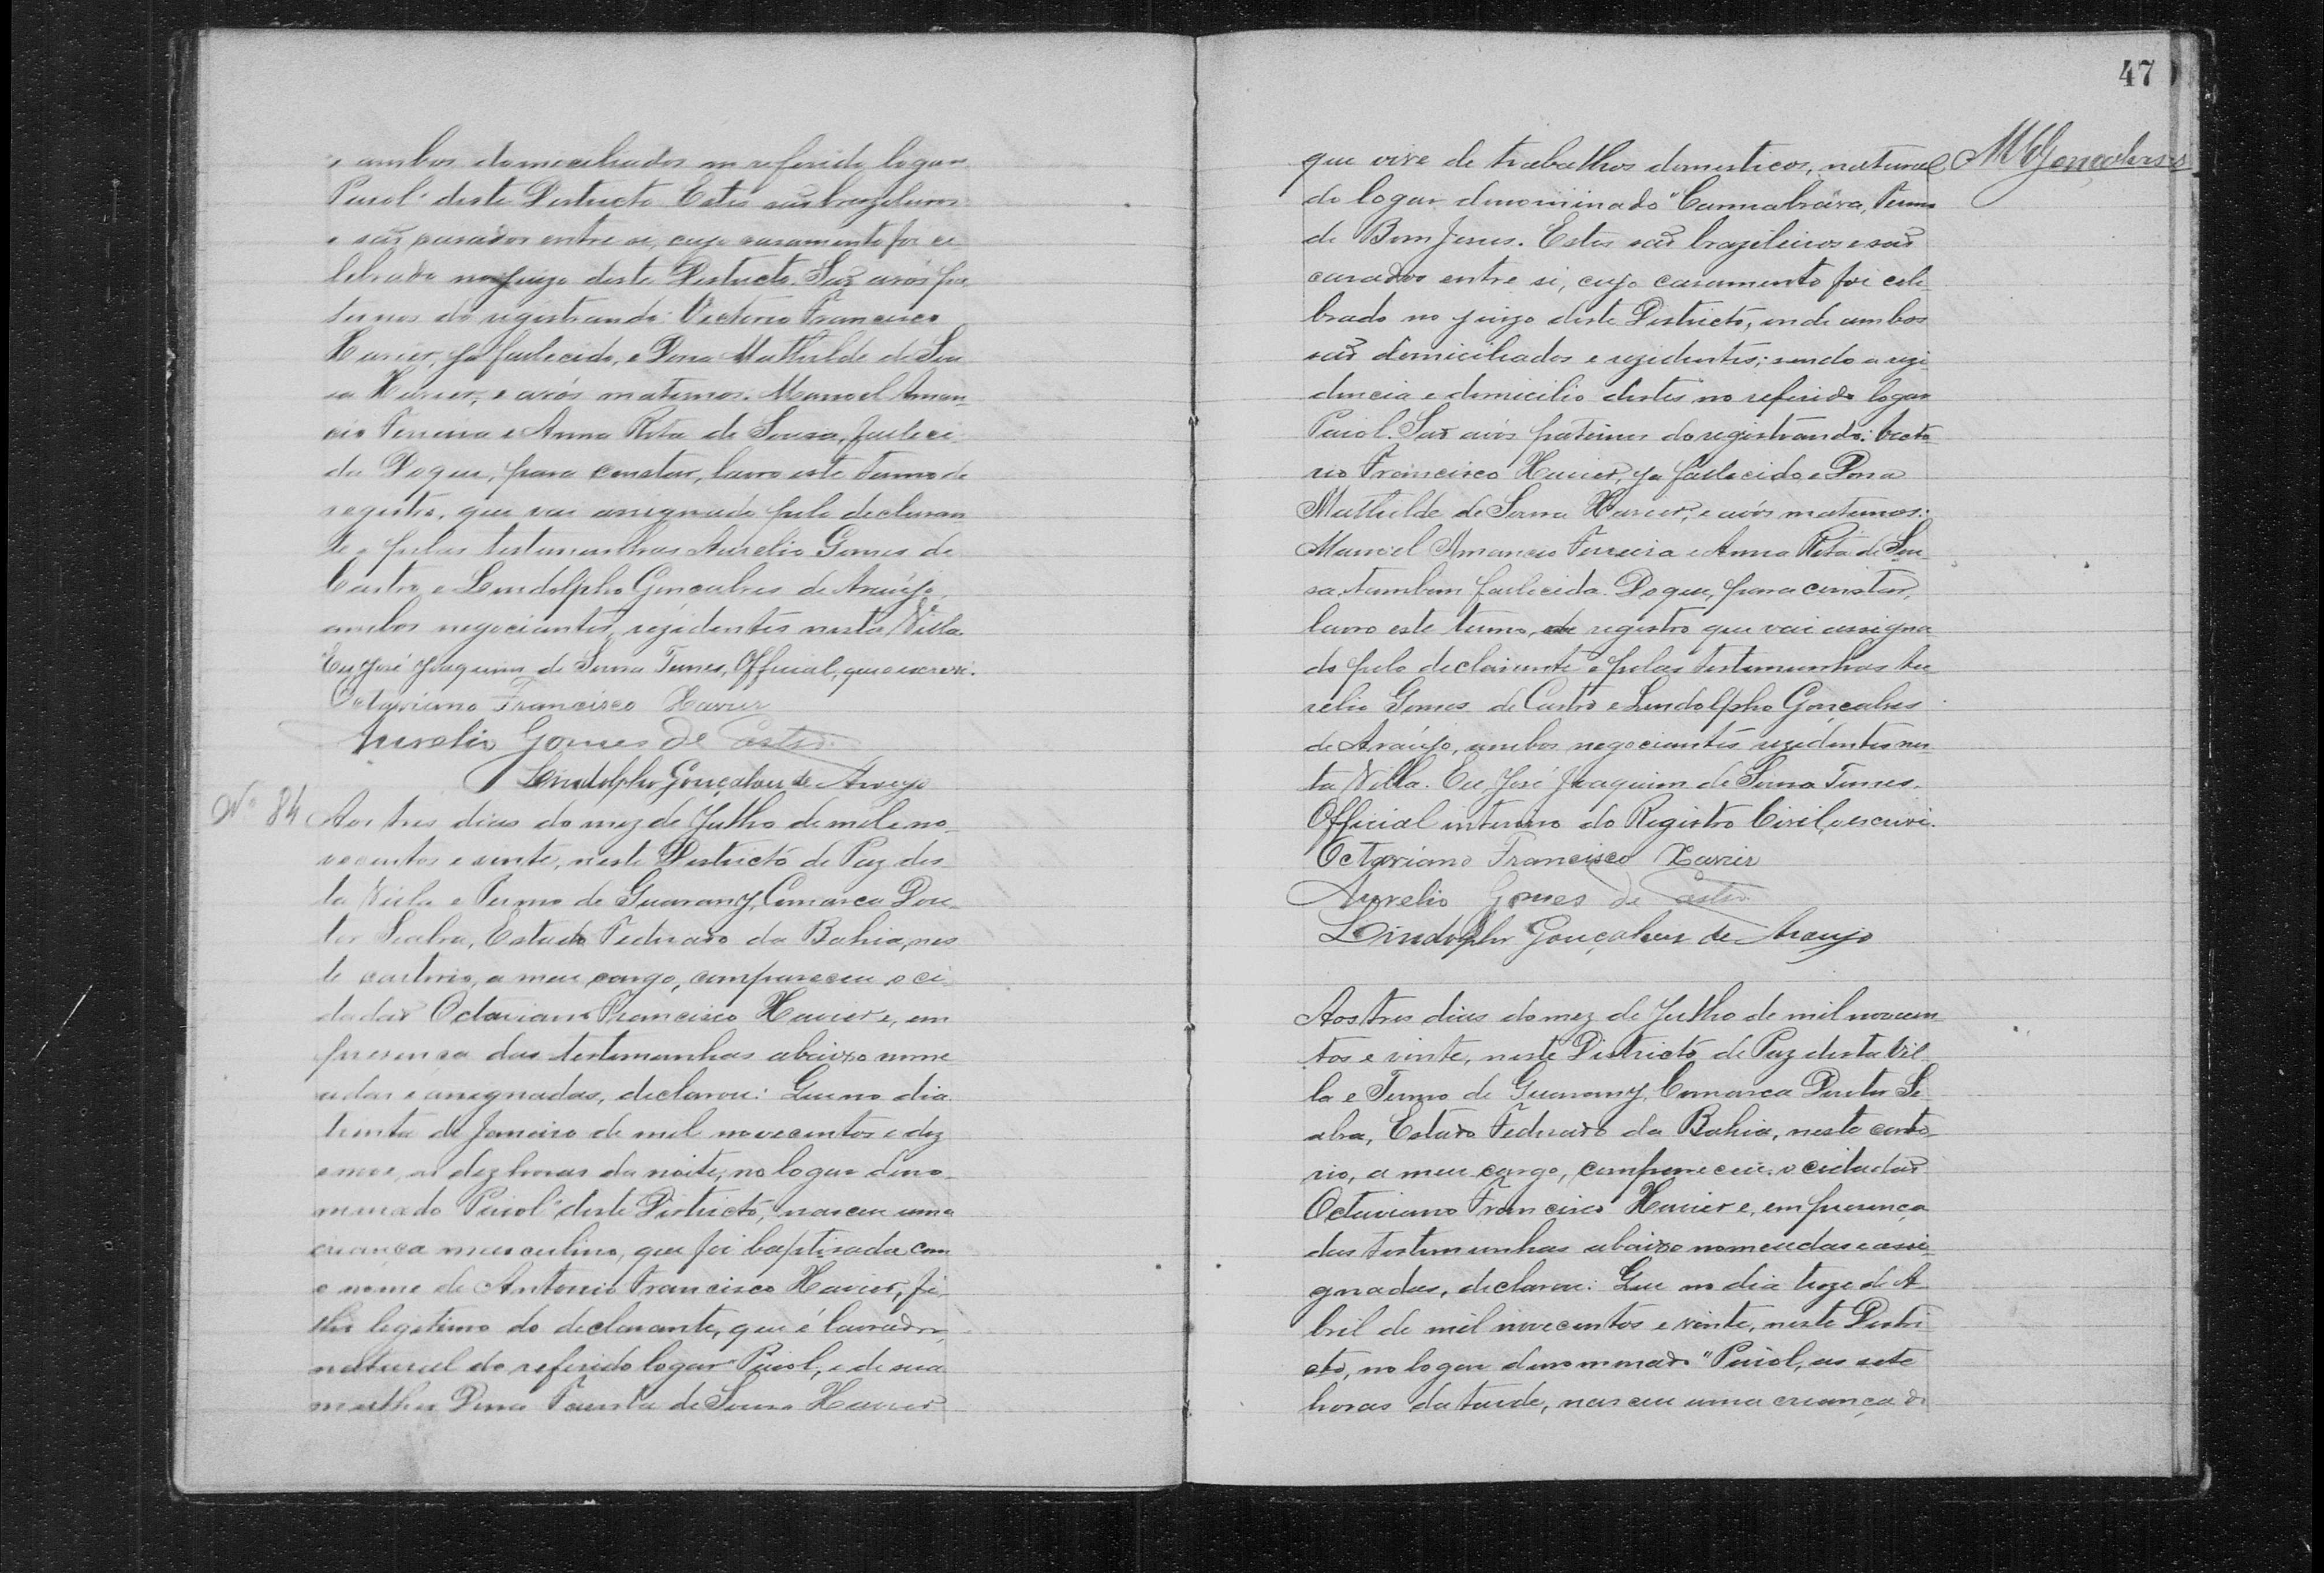 e ambos domiciliados no referido logar
"Paiol" deste Districto. Estes são brazileiros
e são casados entre si, cujo casamento foi ce-
lebrado no juizo deste Districto. São avós pa-
ternos do registrando: Victorio Francisco
Xavier, ja fallecido, e Dona Mathilde de Sou-
sa Xavier, e avós maternos: Manoel Aman-
cio Ferreira e Anna Rita de Sousa, falleci-
da. Do que, para constar, lavro este termo de
registro, que vai assignado pelo declaran-
te e pelas testemunhas Aurelio Gomes de
Castro e Lindolpho Gonçalves de Araújo,
ambos negociantes, rezidentes nesta Villa.
Eu José Joaquim de Sousa Tunes, Official, que escrevi.
Octaviano Francisco Xavier
Aurelio Gomes de Castro
Lindolpho Gonçalves de Araujo
Nº 84
Aos tres dias do mez de Julho de mil e no-
vecentos e vinte, neste Districto de Paz des-
ta Villa e Termo de Guarany, Comarca Dou-
tor Seabra, Estado Federado da Bahia, nes-
te cartorio, a meu cargo, compareceu o ci-
dadão Octaviano Francisco Xavier e, em
presença das testemunhas abaixo nome-
adas e assignadas, declarou: Que no dia
trinta de Janeiro de mil novecentos e dez
e nove, as dez horas da noite, no logar deno-
minado "Paiol" deste Districto, nasceu uma
criança masculino, que foi baptisada com
o nome de Antonio Francisco Xavier, fi-
lho legitimo do declarante, que é lavrador,
natural do referido logar "Paiol", e de sua
mulher Dona Fausta de Sousa Xavier
47
que vive de trabalhos domesticos, natural
MGonçalves
do logar denominado "Cannabrava, Termo
de Bom Jesus. Estes são brazileiros e são
casados entre si, cujo casamento foi cele-
brado no juizo deste Districto, onde ambos
são domiciliados e rezidentes; sendo a rezi-
dencia e domicilio destes no referido logar
Paiol. São avós paternos do registrando: Victo-
rio Francisco Xavier, ja fallecido e Dona
Mathilde de Sousa Xavier, e avós maternos:
Manoel Amancio Ferreira e Anna Rita de Sou-
sa, tambem fallecida. Do que, para constar,
lavro este termo, de registro que vai assigna-
do pelo declarante e pelas testemunhas Au-
relio Gomes de Castro e Lindolpho Gonçalves
de Araújo, ambos negociantes rezidentes nes-
ta Villa. Eu, José Joaquim de Sousa Tunes.
Official interino do Registro Civil, o escrevi.
Octaviano Francisco Xavier
Aurelio Gomes de Castro
Lindolpho Gonçalves de Araujo
Aos tres dias do mez de Julho de mil novecen-
tos e vinte, neste Districto de Paz desta Vil-
la e Termo de Guarany, Comarca Doutor Se-
abra, Estado Federado da Bahia, neste carto-
rio, a meu cargo, compareceu o cidadão
Octaviano Francisco Xavier e, em presença
das testemunhas abaixo nomeadas e assi-
gnadas, declarou: Que no dia treze de A-
bril de mil novecentos e vinte, neste Distri-
cto, no logar denominado "Paiol, as sete
horas da tarde, nasceu uma criança do